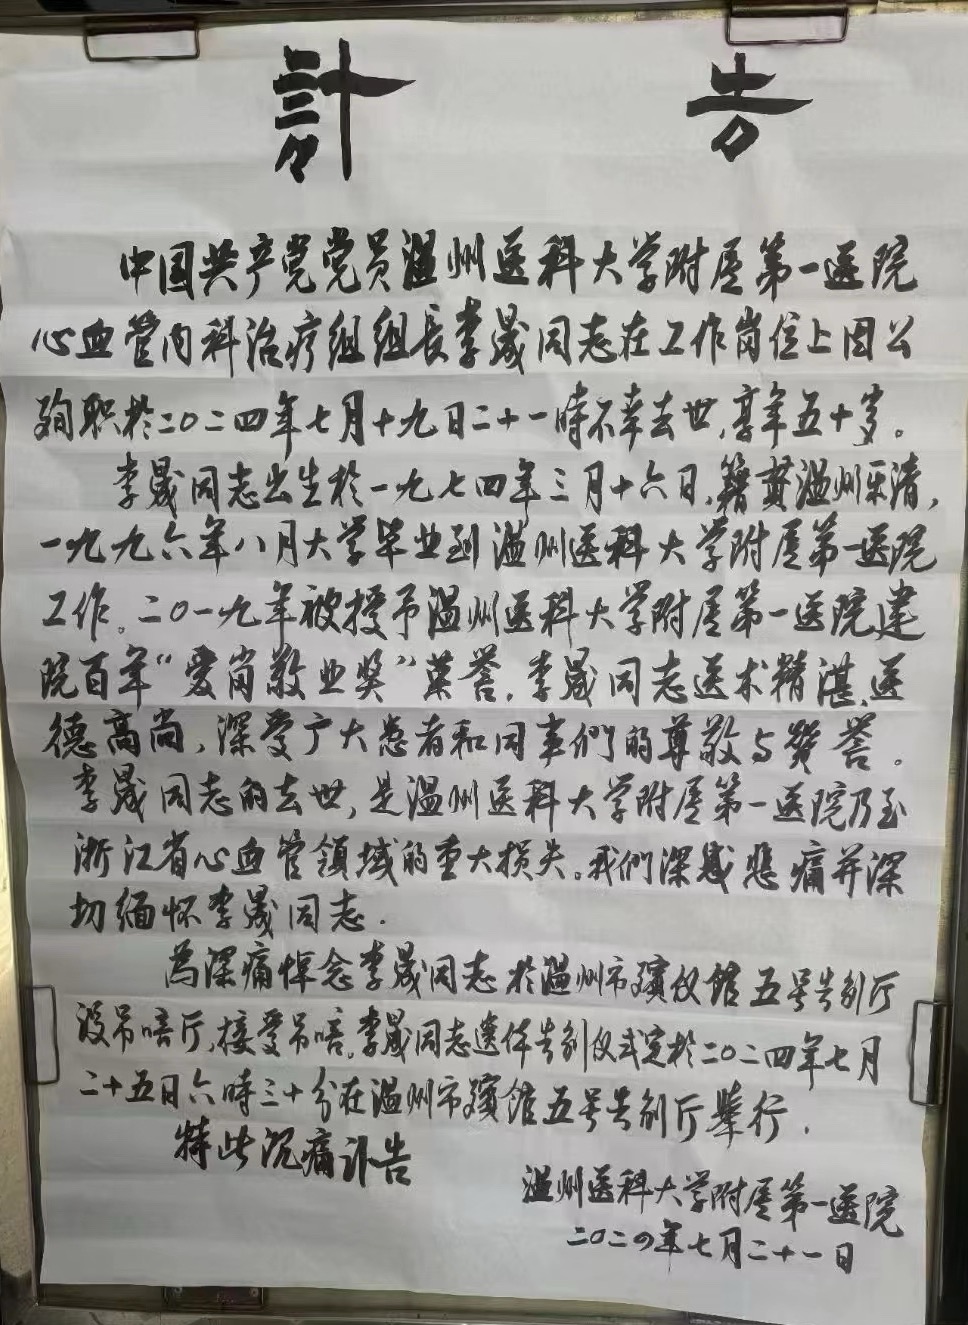 訃告
中国共产党党员温州医科大学附属第一医院
心血管内科治疗组组長李晟同志在工作岗位上因公
殉职於二〇二四年七月十九日二十一時不幸去世,享年五十岁。
李晟同志出生於一九七四年三月十六日,籍貫温州乐清,
一九九六年八月大学毕业到温州医科大学附属第一医院
工作。二〇一九年被授予温州医科大学附属第一医院建
院百年“爱岗敬业奖”荣誉,李晟同志医术精湛,医
德高尚,深受广大患者和同事們的尊敬与赞誉。
李晟同志的去世,是温州医科大学附属第一医院乃至
浙江省心血管领域的重大损失。我們深感悲痛并深
切缅怀李晟同志.
為深痛悼念李晟同志於温州市殡仪馆五号告别厅
设吊唁厅,接受吊唁,李晟同志遗体告别仪式定於二〇二四年七月
二十五日六時三十分在温州市殡馆五号告别厅舉行.
特此沉痛讣告
温州医科大学附属第一医院
二〇二四年七月二十一日